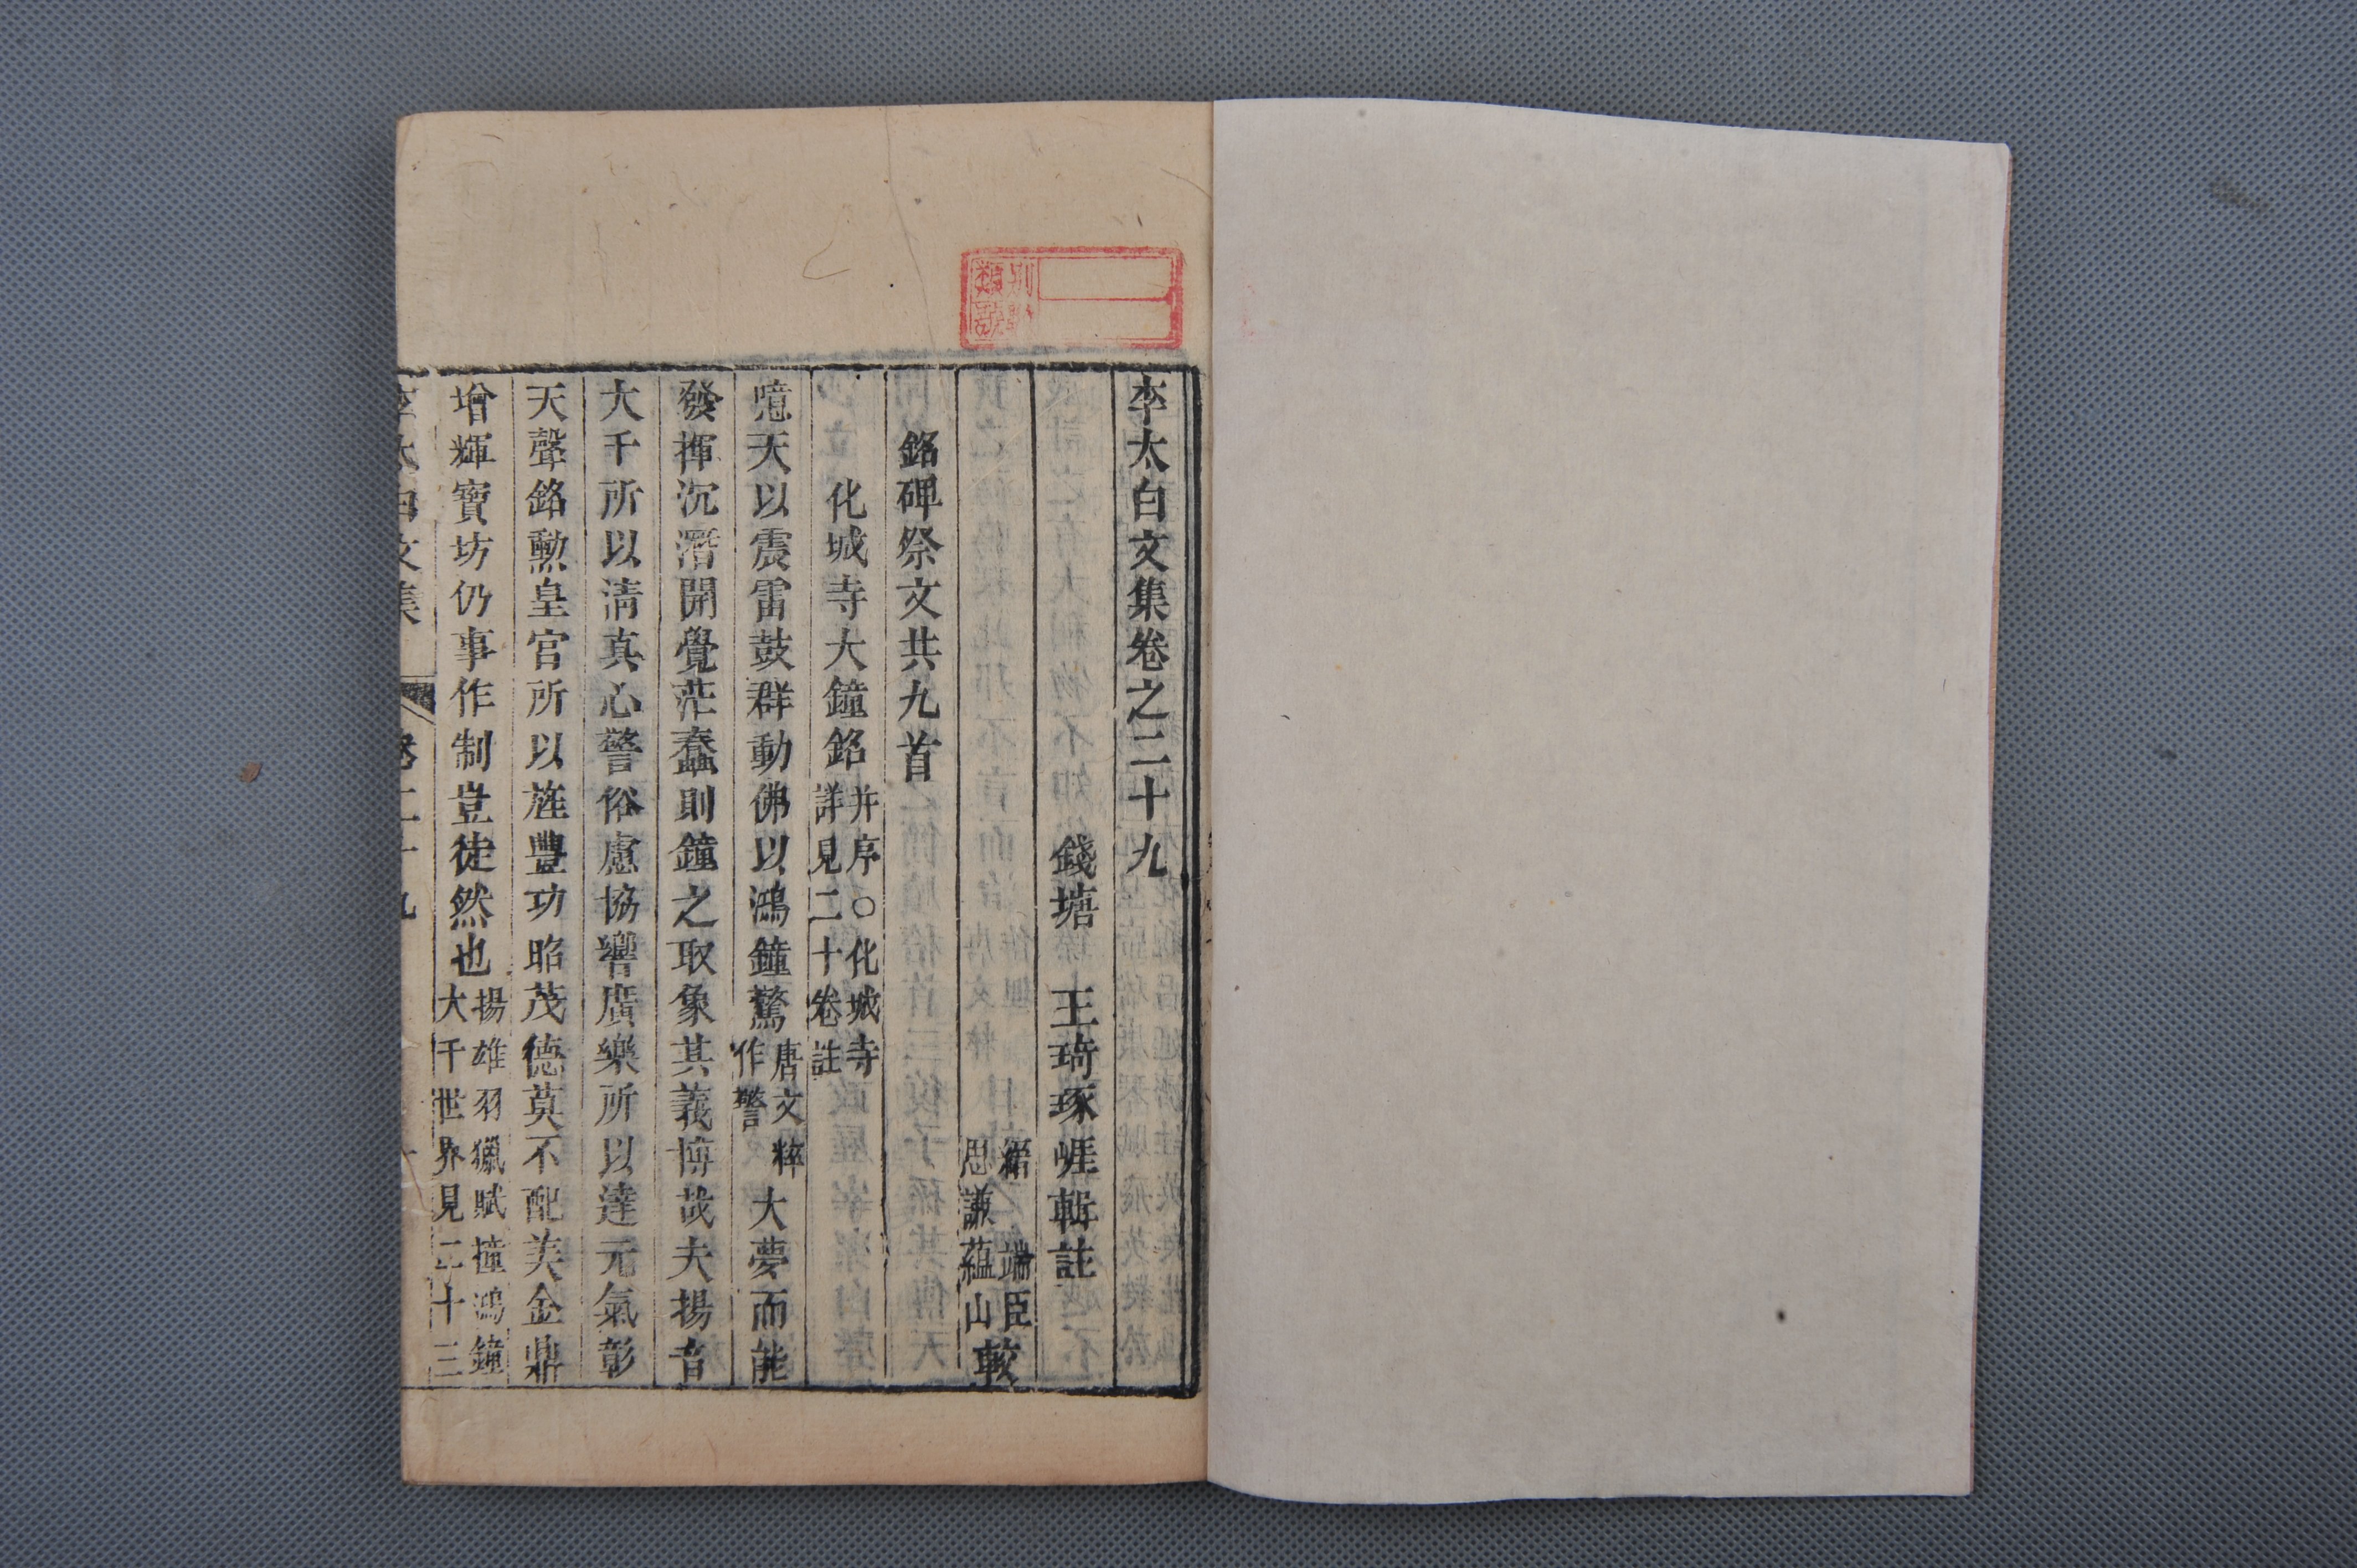 李太白文集卷之二十九
錢塘 王琦琢崖輯註
縉 端臣
思謙 蘊山 較
銘碑祭文共九首
化城寺大鐘銘 并序○化城寺詳見二十卷註
噫天以震雷鼓群動佛以鴻鐘驚 唐文粹作警 大夢而能
發揮沉潛開覺茫蠢則鐘之取象其義博哉夫揚音
大千所以清真心警俗慮協響廣樂所以達元氣彰
天聲銘勲皇宮所以旌豐功昭茂德莫不配美金鼎
增輝寶坊仍事作制豈徒然也 揚雄羽獵賦撞鴻鐘大千世界見二十三
李太白文集 卷二十九